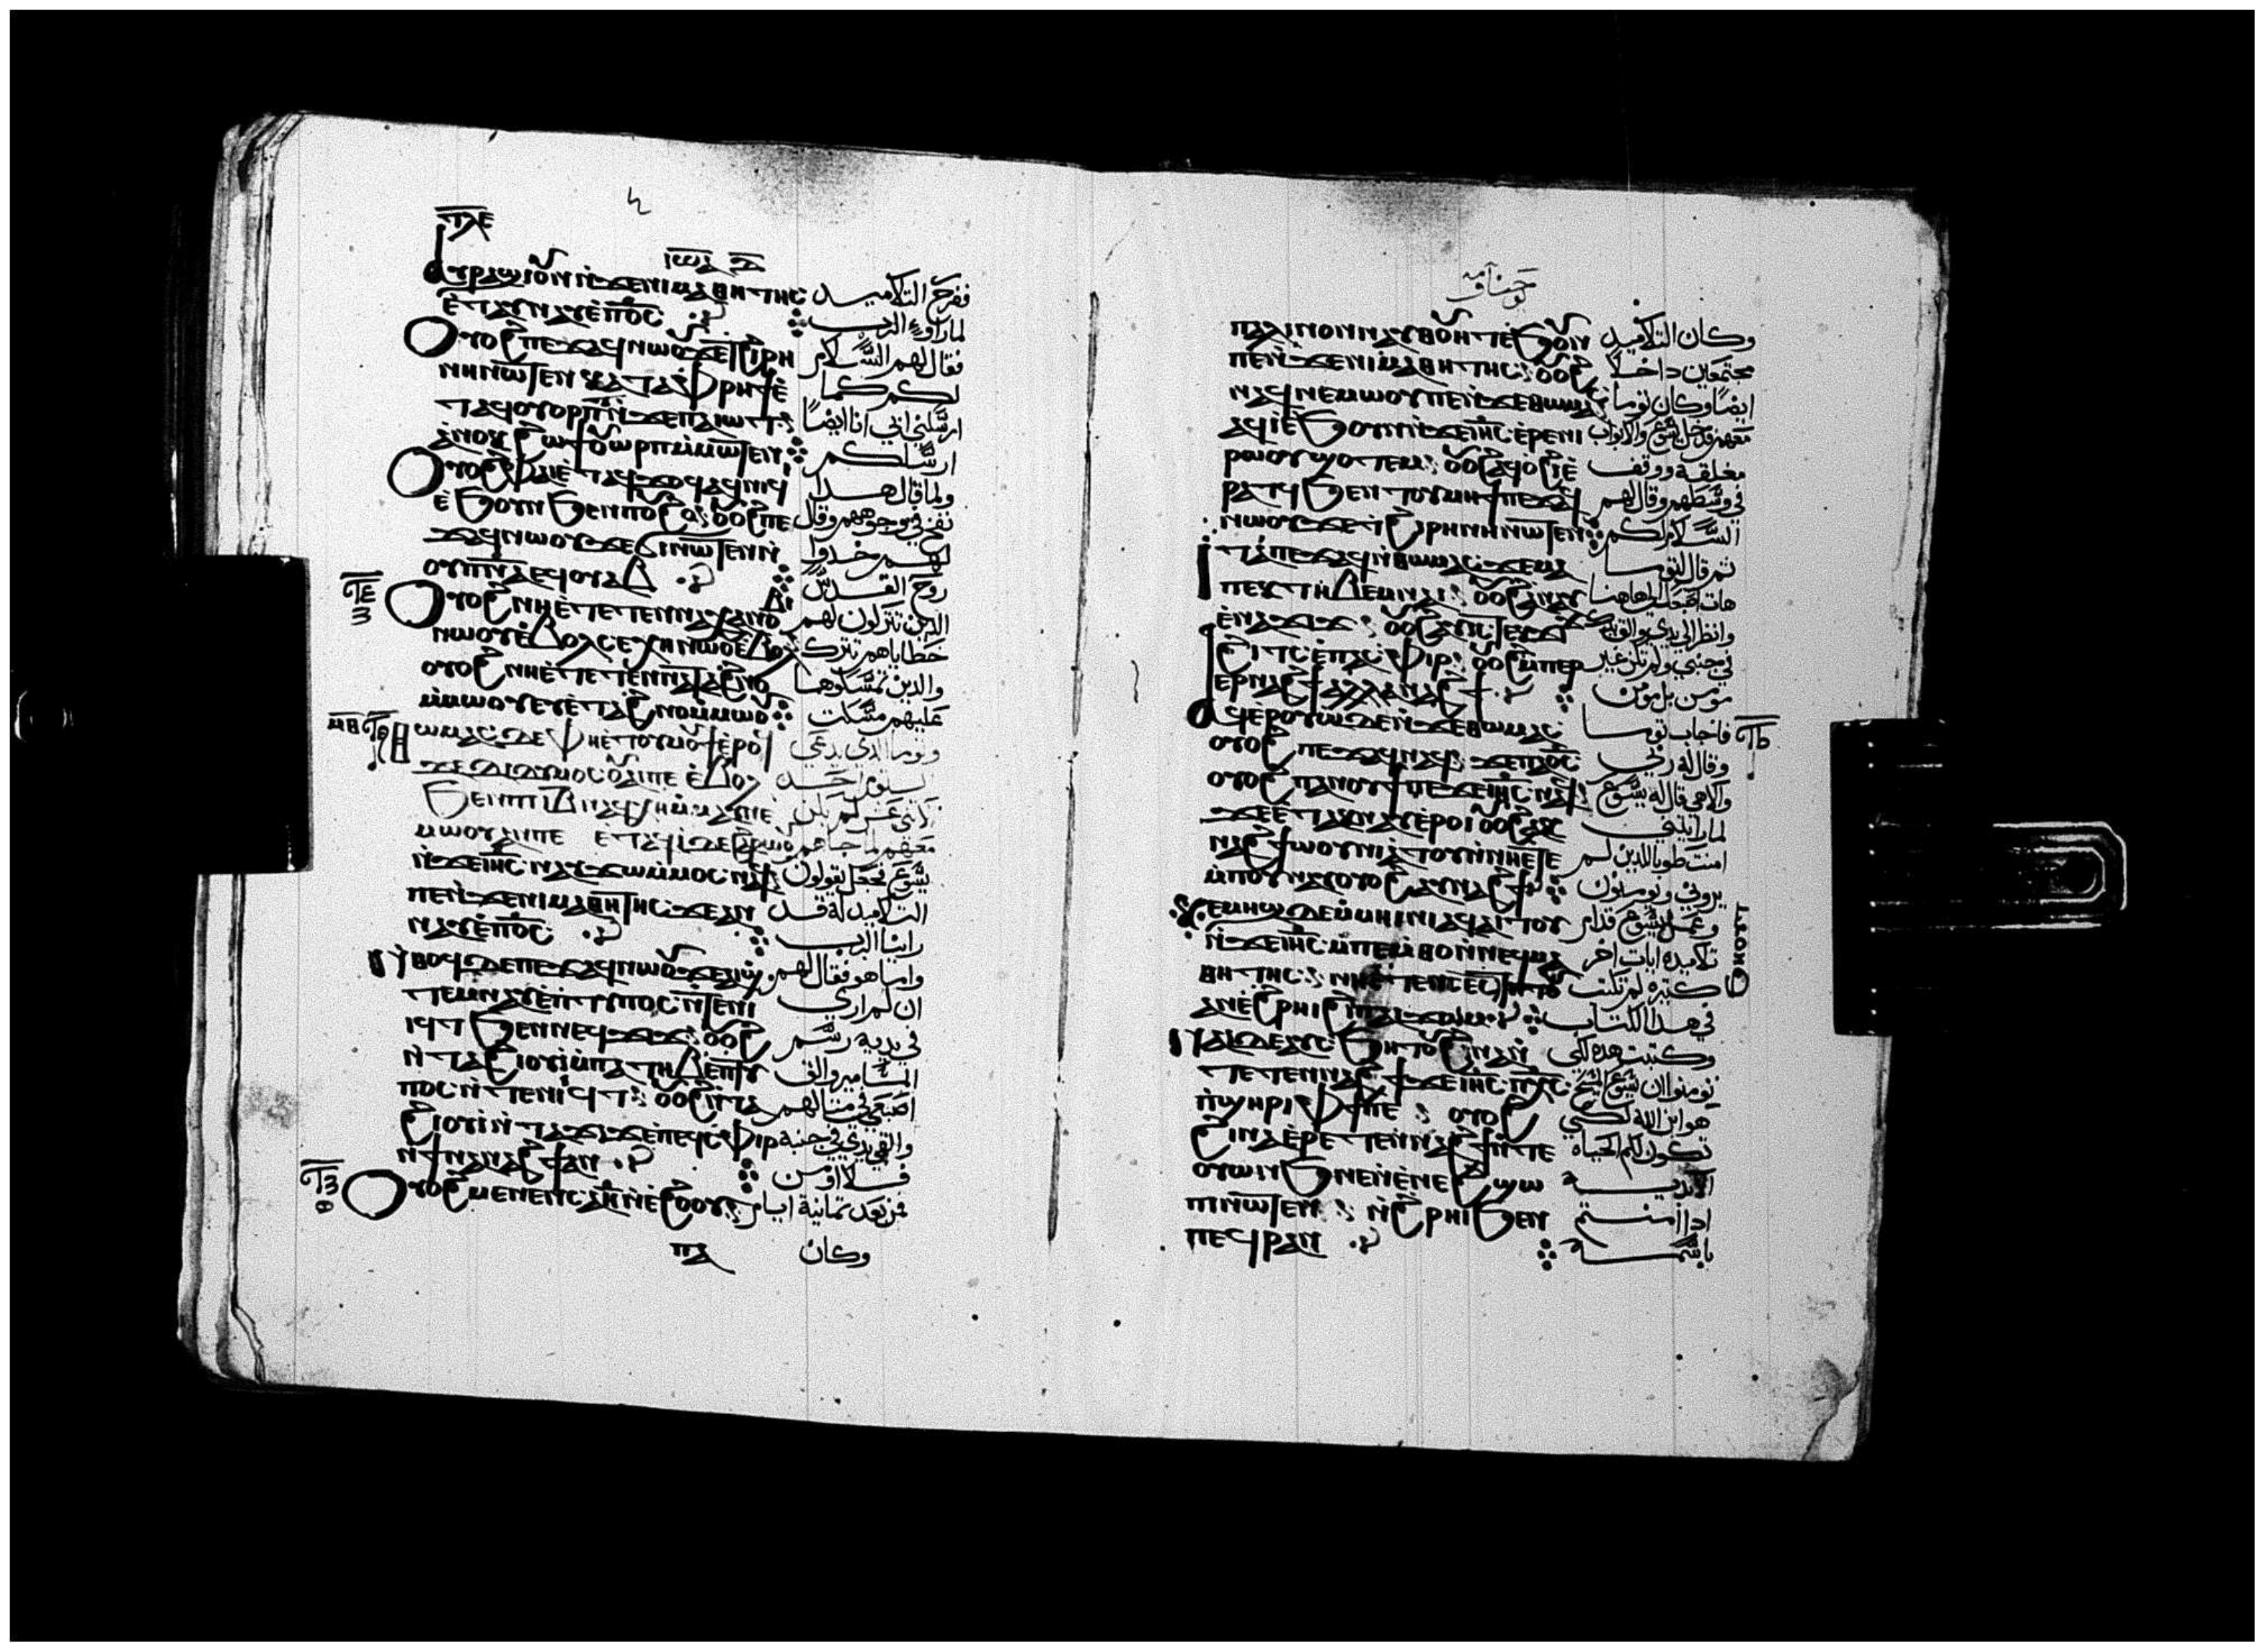 ⲓⲱⲁ
ⲁⲩⲣⲁϣⲓ ⲟⲩⲛ ⲛ̀ϫⲉⲛⲓⲙⲁⲑⲏⲧⲏⲥ ففرح التلاميد
ⲉ̀ⲧⲁⲩⲛⲁⲩ ⲉ̀ⲡ︦ⲟ︦ⲥ︦ لما راوا الرب
ⲟⲩⲟϩ ⲡⲉϫⲁϥ ⲛⲱⲟⲩ ϫⲉ ⲧϩⲓⲣⲏ فقال لهم السلام
ⲛⲏ ⲛⲱⲧⲉⲛ ⲕⲁⲧⲁ ⲫ̀ⲣⲏϯ ⲉ̀ لكم كما
ⲧⲁϥⲟⲩⲟⲣⲡⲧ ⲛ̀ϫⲉⲡⲁⲓⲱⲧ ارسلني ابي انا ايضا
ⲁⲛⲟⲕ ϩⲱ ϯⲟⲩⲱⲣⲡ ⲙ̀ⲙⲱⲧⲉⲛ ارسلكم
ⲟⲩⲟϩ ⲫⲁⲓ ⲉ̀ⲧⲁϥϫⲟϥ ⲁϥⲛⲓϥⲓ ولما قال هدا
ⲉ̀ϧⲟⲩⲛ ϧⲉⲛ ⲡⲟⲩϩⲟ ⲟⲩⲟϩ ⲡⲉ نفخ في وجوههم وقال
ϫⲁϥ ⲛⲱⲟⲩ ϫⲉ ϭⲓ ⲛⲱⲧⲉⲛ ⲛ̀ لهم خدوا
ⲟⲩⲡ︦ⲛ︦ⲁ︦ ⲉϥⲟⲩⲁⲃ روح القدس
ⲟⲩⲟϩ ⲛⲏ ⲉ̀ⲧⲉⲧⲉⲛⲛⲁⲭⲁ ⲛⲟⲃⲓ الدين تتركون لهم
ⲛⲱⲟⲩ ⲉ̀ⲃⲟⲗ ⲥⲉⲭⲏ ⲛⲱⲟⲩ ⲉⲃⲟⲗ خطاياهم تترك
ⲟⲩⲟϩ ⲛⲏ ⲉ̀ⲧⲉⲧⲉⲛⲛⲁⲧⲁϩⲛⲟ والدين تمسكوها
ⲙ̀ⲙⲱⲟⲩ ⲉⲩⲉ̀ⲧⲁϩⲛⲟ ⲙ̀ⲙⲱⲟⲩ عليهم مسكت
ⲑⲱⲙⲁⲥ ⲇⲉ ⲫⲏ ⲉ̀ⲧⲟⲩⲙⲟⲩϯ ⲉ̀ⲣⲟϥ وتوما الدي يدعي
ϫⲉ ⲇⲓⲇⲩⲙⲟⲥ ⲟⲩⲁⲓ ⲡⲉ ⲉ̀ⲃⲟⲗ
ϧⲉⲛ ⲡⲓⲓⲃ ⲛⲁϥⲭⲏ ⲙ̀ⲙⲁⲩ ⲡⲉ عشر لم يكن
ⲙⲱⲟⲩ ⲁⲛ ⲡⲉ ⲉⲧⲁϥⲓ̀ ⲇⲉ ϩⲁⲣⲱⲟⲩ معهم لما جاهم
ⲛ̀ϫⲉⲓ︦ⲏ︦ⲥ︦ ⲛⲁⲩϫⲱ ⲙ̀ⲙⲟⲥ ⲛⲁϥ يسوع فجعل يقولون
ⲡⲉ ⲛ̀ϫⲉⲛⲓⲙⲁⲑⲏⲧⲏⲥ ϫⲉ ⲁⲛ التلاميد له قد
ⲛⲁⲩ ⲉ̀ⲡ︦ⲟ︦ⲥ︦ راينا الرب
ⲛ̀ⲑⲟϥ ⲇⲉ ⲡⲉϫⲁϥ ⲛⲱⲟⲩ ϫⲉ ⲁⲓϣ واما هو فقال لهم
ⲧⲉⲙⲛⲁⲩ ⲉ̀ⲡⲧⲩⲡⲟⲥ ⲛ̀ⲧⲉⲛⲓ ان لم اري
ⲓϥⲧ ϧⲉⲛ ⲛⲉϥϫⲓϫ ⲟⲩⲟϩ في يديه رسم
ⲛ̀ⲧⲁϩⲓⲟⲩⲓ̀ ⲙ̀ⲡⲁⲧⲏⲃ ⲉ̀ⲡⲧⲩ المسامير والق
ⲡⲟⲥ ⲛ̀ⲧⲉⲛⲓⲓϥⲧ ⲟⲩⲟϩ ⲛ̀ⲧⲁ اصبعي في مثالهم
ϩⲓⲟⲩⲓ̀ ⲛ̀ⲧⲁϫⲓϫ ⲉ̀ⲡⲉϥⲥⲫⲓⲣ والق يدي في جنبه
ⲛ̀ϯⲛⲁⲛⲁϩϯ ⲁⲛ فلا اومن
ⲟⲩⲟϩ ⲙⲉⲛⲉⲛⲥⲁ ⲏ ⲛ̀ⲉ̀ϩⲟⲟⲩ من بعد تمانية ايام
ⲡⲁ وكان
ⲡⲁⲗⲓⲛ ⲟⲛ ⲛⲁⲩⲑⲟⲩⲏⲧ ⲉ̀ϧⲟⲩⲛ وكان التلاميد
ⲡⲉ ⲛ̀ϫⲉⲛⲓⲙⲁⲑⲏⲧⲏⲥ ⲟⲩⲟϩ مجتمعين داخلا
ⲛⲁϥⲛⲉⲙⲱⲟⲩ ⲡⲉ ⲛ̀ϫⲉⲑⲱⲙⲁⲥ ايضا وكان توما
ⲁϥⲓ̀ ⲉ̀ϧⲟⲩⲛ ⲛ̀ϫⲉⲓ︦ⲏ︦ⲥ︦ ⲉ̀ⲣⲉ ⲛⲓ معهم فدخل يسوع والابواب
ⲣⲱⲟⲩ ϣⲟⲧⲉⲙ ⲟⲩⲟϩ ⲁϥⲟ̀ϩⲓ ⲉ̀ مغلقة ووقف
ⲣⲁⲧϥ ϧⲉⲛ ⲧⲟⲩⲙⲏϯ ⲡⲉϫⲁϥ في وسطهم وقال لهم
ⲛⲱⲟⲩ ϫⲉ ⲧϩⲓⲣⲏⲛⲏ ⲛⲱⲧⲉⲛ السلام لكم
ⲓⲧⲁ ⲡⲉϫⲁϥ ⲛ̀ⲑⲱⲙⲁⲥ ϫⲉ ⲙⲁ تم قال لتوما
ⲡⲉⲕⲧⲏⲃ ⲉⲙⲛⲁⲓ ⲟⲩⲟϩ ⲁⲛⲁⲩ هات اصبعك الي هاهنا
ⲉ̀ⲛⲁϫⲓϫ ⲟⲩⲟϩ ⲁⲩⲓⲥ ⲧⲉⲕϫⲓϫ وانظر الي يدي والق يدك
ϩⲓⲧⲥ ⲉ̀ⲡⲁⲥⲫⲓⲣ ⲟⲩⲟϩ ⲙ̀ⲡⲉⲣ في جنبي ولا تكن غير
ⲉⲣⲛⲁϩϯ ⲁⲗⲗⲁ ⲛⲁϩϯ مومن بل مومن
ⲁϥⲉ̀ⲣⲟⲩⲱ ⲇⲉ ⲛ̀ϫⲉⲑⲱⲙⲁⲥ فاجاب توما
ⲟⲩⲟϩ ⲡⲉϫⲁϥ ⲛⲁϥ ϫⲉ ⲡⲁ︦ⲟ︦ⲥ︦ وقال له ربي
ⲟⲩⲟϩ ⲡⲁⲛⲟⲩϯ ⲡⲉϫⲉ ⲓ︦ⲏ︦ⲥ︦ ⲛⲁϥ والاهي قال له يسوع
ϫⲉ ⲉ̀ⲧⲁⲕⲛⲁⲩ ⲉ̀ⲣⲟⲓ ⲟⲩⲟϩ ⲁⲕ لما رايتني
ⲛⲁϩϯ ⲱⲟⲩⲛⲓⲁⲧⲟⲩ ⲛ̀ⲛⲏ ⲉ̀ⲧⲉ امنت طوبا للدين لم
ⲙ̀ⲡⲟⲩⲛⲁⲩ ⲟⲩⲟϩ ⲁⲩⲛⲁϩϯ يروني ويومنون
ⲕⲉⲙⲏϣ ⲇⲉ ⲙ̀ⲙⲏⲓⲛⲓ ⲁϥⲁⲓⲧⲟⲩ وعمل يسوع قدام
ⲛ̀ϫⲉⲓ︦ⲏ︦ⲥ︦ ⲙ̀ⲡⲉⲙ̀ⲑⲟ ⲛ̀ⲛⲉϥⲙⲁ تلاميده ايات اخر
ⲑⲏⲧⲏⲥ ⲛⲏ ⲉ̀ⲧⲉ ⲛⲥⲉⲥϧⲏⲟⲩⲧ كتيره لم تكتب
ⲁⲛ ⲉ̀ϩⲣⲏⲓ ϩⲓ ⲡⲁⲓϫⲱⲙ في هدا الكتاب
ⲛⲁⲓ ⲇⲉ ⲁⲩⲥϧⲏⲧⲟⲩ ϩⲓⲛⲁ ⲛ̀ وكتبت هده لكي
ⲧⲉⲧⲉⲛⲛⲁϩϯ ϫⲉ ⲓ︦ⲏ︦ⲥ︦ ⲡ︦ⲭ︦ⲥ︦ تومنوا ان يسوع المسيح
ⲡ̀ϣⲏⲣⲓ ⲙ̀ⲫϯ ⲡⲉ ⲟⲩⲟϩ هو ابن الله لكي
ϩⲓⲛⲁ ⲉ̀ⲣⲉⲧⲉⲛⲛⲁϩϯ ⲛ̀ⲧⲉ تكون لكم الحياه
ⲟⲩⲱⲛϧ ⲛ̀ⲉⲛⲉϩ ϣⲱ الابديه
ⲡⲓ ⲛⲱⲧⲉⲛ ⲛ̀ϩⲣⲏⲓ ϧⲉⲛ ادا امنتم
ⲡⲉϥⲣⲁⲛ باسمه